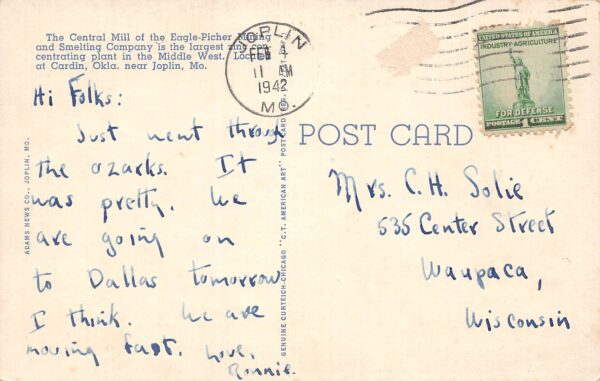 The Central Mill of the Eagle-Picher Mining
and Smelting Company is the largest zinc con-
centrating plant in the Middle West. Located
at Cardin, Okla. near Joplin, Mo.
JOPLIN
FEB 4
11 AM
1942
MO.
UNITED STATES OF AMERICA
INDUSTRY·AGRICULTURE
FOR DEFENSE
POSTAGE 1 CENT
Hi Folks:
Just went through
the ozarks. It
was pretty. We
are going on
to Dallas tomorrow
I think. We are
moving fast. Love,
Ronnie.
ADAMS NEWS CO., JOPLIN, MO.
GENUINE CURTEICH-CHICAGO "C.T. AMERICAN ART" POST CARD
POST CARD
Mrs. C. H. Solie
535 Center Street
Waupaca,
Wisconsin